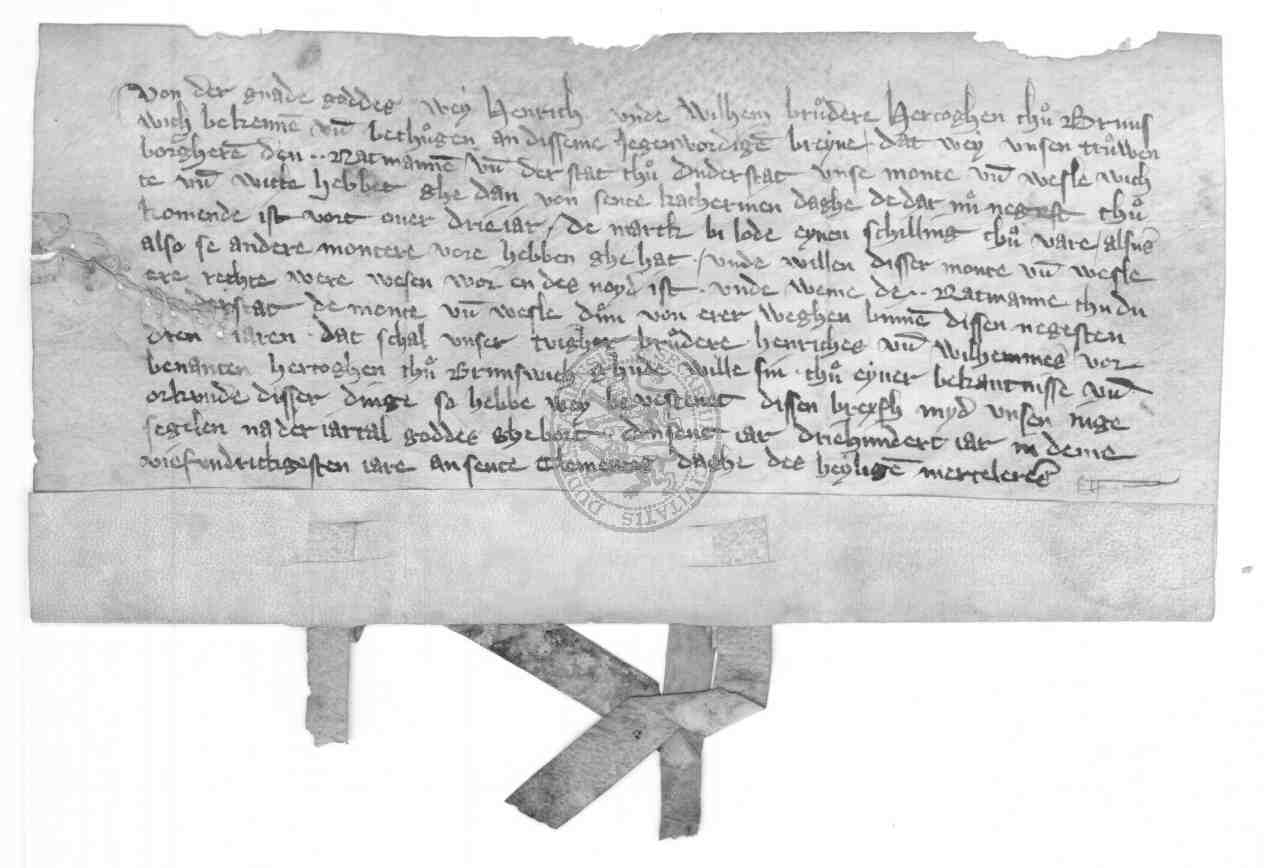 Von der gnade goddes wey Henrich unde Wilhem brůdere Hertoghen thů Bruns
wich bekennē vn̄ bethůgen an disseme jegenwordigē breyue / dat wey vnsen trůwen
borgherē den ·· Ratmannē vn̄ der stat thů Duderstat vnse monte vn̄ wesle wich
te vn̄ witte hebbet ghe dan von sente katherinen daghe de dar nů negest thů
komende ist vort ouer drie iar / de marck bi lode eynen schilling thů vare / alsus
also se andere montere vore hebben ghe hat · / vnde willen disser monte vn̄ wesle
ere rechte were wesen wor en des noyd ist · vnde weme de ·· Ratmanne thu du
derstat de monte vn̄ wesle důn von erer weghen binnē dissen negesten
dren iaren · dat schal vnser twigher brůdere henriches vn̄ wilhemmes vor
benanten hertoghen thů Brunswich ghude wille sin · thů eyner bekantnisse vn̄
orkunde disser dinge so hebbe wey be vestenet dissen breyf myd vnsen inge
segelen na der iartal goddes ghebort · dusent iar driehundert iar in deme
vief vndrittigesten iare an sente Clementes daghe des heyligē merteleres